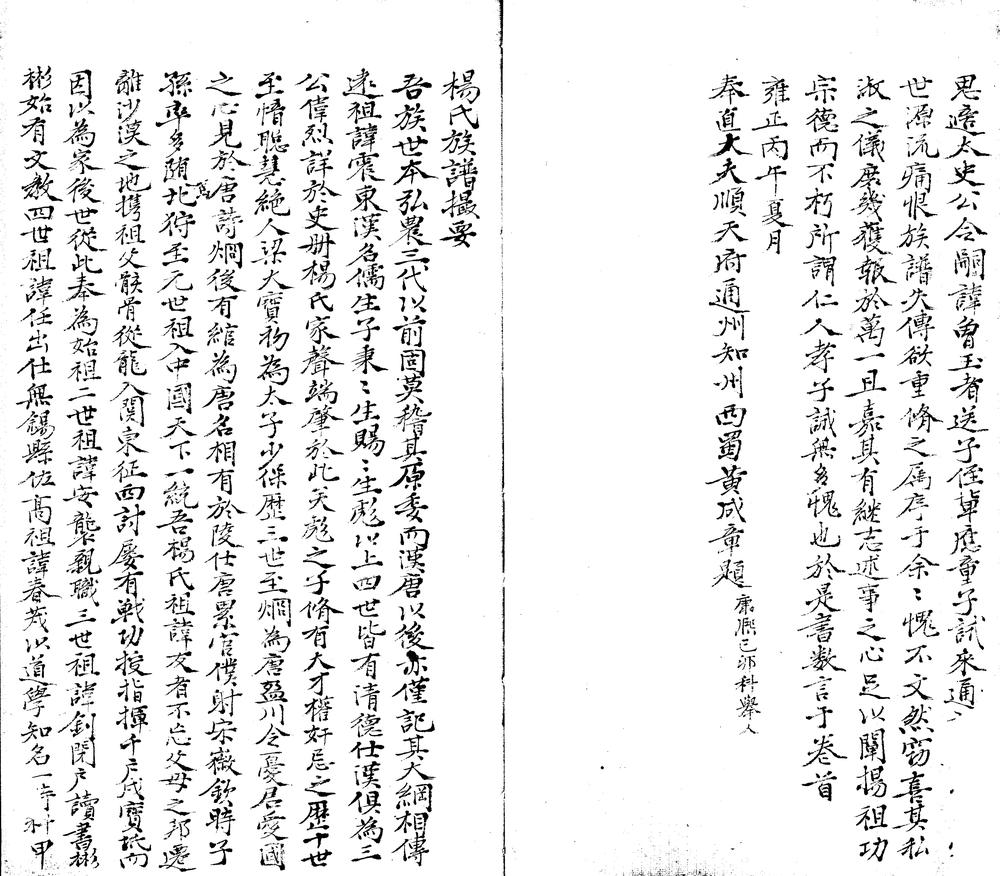 思遠太史公令嗣諱曾玉者送子侄輩應童子試來通
世源流痛恨族譜失傳欲重脩之属序于余〻愧不文然窃喜其私
淑之儀庶幾獲報於萬一且嘉其有継志述事之心足以闡揚祖功
宗德而不朽所謂仁人孝子誠無多愧也於是書数言于卷首
雍正丙午夏月
奉直大夫順天府通州知州西蜀黄成章題 康熙己卯科舉人
楊氏族譜撮要
吾族世本弘農三代以前固莫稽其原委而漢唐以後亦僅記其大綱相傳
逺祖諱震東漢名儒生子秉〻生賜〻生彪以上四世皆有清德仕漢俱為三
公偉烈詳於史册楊氏家聲端肇於此矣彪之子脩有大才權奸忌之歴十世
至愔聰慧絶人梁大寶初為太子少保歴三世至烱為唐盈川令憂居愛國
之心見於唐詩烱後有綰為唐名相有於陵仕唐累官僕射宋徽欽時子
孫率多随萬北狩至元世祖入中國天下一統吾楊氏祖諱友者不忘父母之邦遷
離沙漠之地携祖父骸骨從龍入関東征西討屡有戦功授指揮千户戍寶坻而
因以為家後世從此奉為始祖二世祖諱安襲親職三世祖諱釗閉户讀書彬
彬始有文教四世祖諱任出仕無錫縣佐高祖諱春茂以道學知名一時科甲